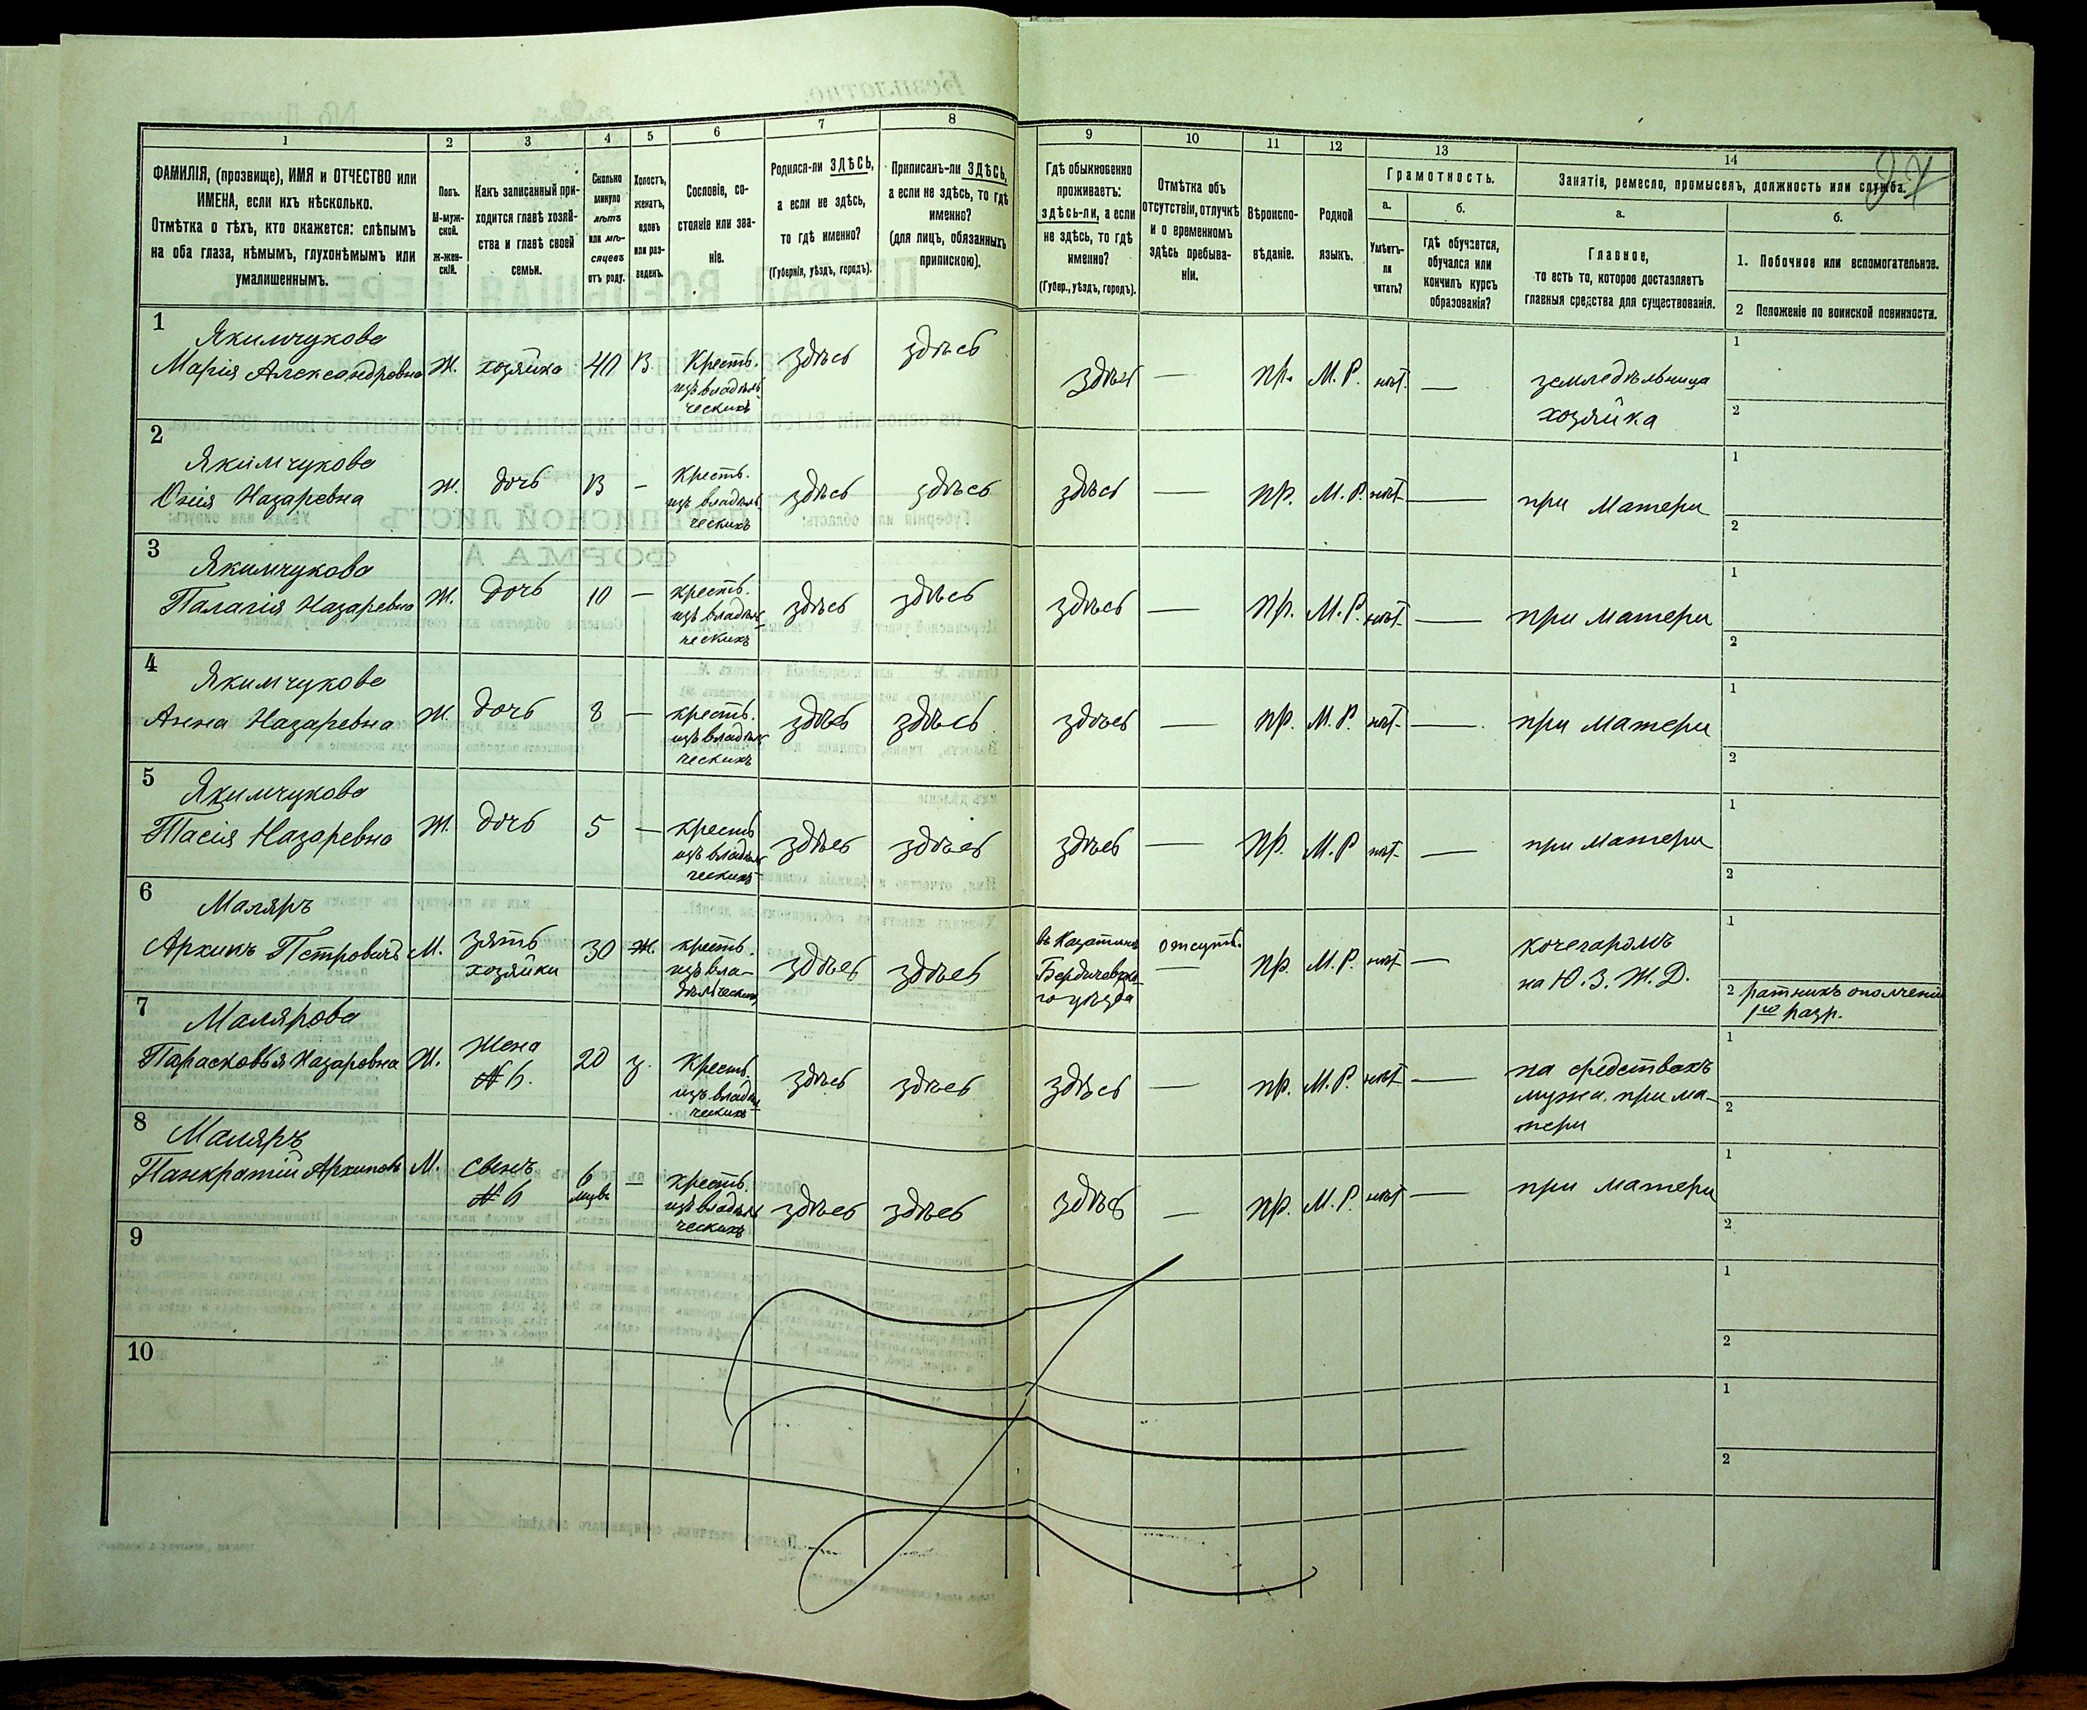 24
1 2 3 4 5 6 7 8 9 10 11 12 13 14
ФАМИЛІЯ, (прозвище), ИМЯ и ОТЧЕСТВО или
ИМЕНА, если ихъ нѣсколько.
Отмѣтка о тѣхъ, кто окажется: слѣпымъ
на оба глаза, нѣмымъ, глухонѣмымъ или
умалишеннымъ.
Полъ.
М-муж-
ской.
Ж-жен-
скій.
Какъ записанный при-
ходится главѣ хозяй-
ства и главѣ своей
семьи.
Сколько
минуло
лѣтъ
или мѣ-
сяцевъ
отъ роду.
Холостъ,
женатъ,
вдовъ
или раз-
веденъ.
Сословіе, со-
стояніе или зва-
ніе.
Родился-ли ЗДѢСЬ,
а если не здѣсь,
то гдѣ именно?
(Губернія, уѣздъ, городъ).
Приписанъ-ли ЗДѢСЬ,
а если не здѣсь, то гдѣ
именно?
(для лицъ, обязанныхъ
припискою).
Гдѣ обыкновенно
проживаетъ:
здѣсь-ли, а если
не здѣсь, то гдѣ
именно?
(Губер., уѣздъ, городъ).
Отмѣтка объ
отсутствіи, отлучкѣ
и о временномъ
здѣсь пребыва-
ніи.
Вѣроиспо-
вѣданіе.
Родной
языкъ.
Грамотность.
а.
Умѣетъ-
ли
читать?
б.
Гдѣ обучается,
обучался или
кончилъ курсъ
образованія?
Занятіе, ремесло, промыселъ, должность или служба.
а.
Главное,
то есть то, которое доставляетъ
главныя средства для существованія.
б.
1. Побочное или вспомогательное.
2 Положеніе по воинской повинности.
1 Якимчукова
Марія Александровна Ж. хозяйка 40 В. Крестъ. здѣсь здѣсь здѣсь — пр. М. Р. нѣт. — земледѣльница
изъ владѣль
ческихъ хозяйка
1
2
2 Якимчукова
Назаревна Ж. дочь 13 — Крестъ. здѣсь здѣсь здѣсь — пр. М. Р. нѣт. — при матери
изъ владѣль
ческихъ
1
2
3 Якимчукова
Палагія Назаревна Ж. дочь 10 — крестъ. здѣсь здѣсь здѣсь — пр. М. Р. нѣт. — при матери
изъ владѣль
ческихъ
1
2
4 Якимчукова
Анна Назаревна Ж. дочь 8 — крестъ. здѣсь здѣсь здѣсь — пр. М. Р. нѣт. — при матери
изъ владѣль
ческихъ
1
2
5 Якимчукова
Тасія Назаревна Ж. дочь 5 — крестъ здѣсь здѣсь здѣсь — пр. М. Р нѣт. — при матери
изъ владѣль
ческихъ
1
2
6 Маляръ
Архипъ Петровичъ М. зять 30 Ж. крестъ. здѣсь здѣсь въ Казатинѣ отсутъ. пр. М. Р. нѣт — кочегаромъ
хозяйки изъ вла- Бердичевска- — на Ю. З. Ж. Д.
дѣльческихъ го уѣзда
1
2 ратникъ ополченія
1го разр.
7 Малярова
Парасковья Назаровна Ж. жена 20 з. Крестъ. здѣсь здѣсь здѣсь — пр. М. Р. нѣт — на средствахъ
№ 6. изъ владѣль мужа. при ма-
ческихъ тери
1
2
8 Маляръ
Панкратій Архиповъ М. сынъ 6 — крестъ. здѣсь здѣсь здѣсь — пр. М. Р. нѣт — при матери
№ 6 мцвъ изъ владѣль
ческихъ
1
2
9
1
2
10
1
2